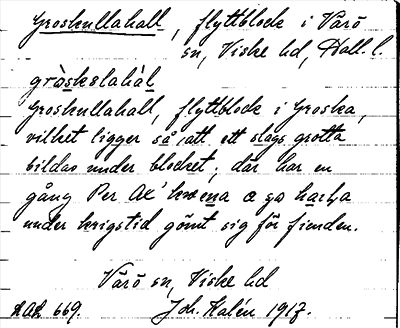 Groskullahall, flyttblock i Värö
sn, Viske hd, Hall. l.
gråskslahàl
Groskullahall, flyttblock i Groska,
vilket ligger så, att ett slags grotta
bildas under blocket; där har en
gång Per Ax'
under krigstid gömt sig för fienden.
Värö sn, Viske hd
669. Joh. Kalén 1917.